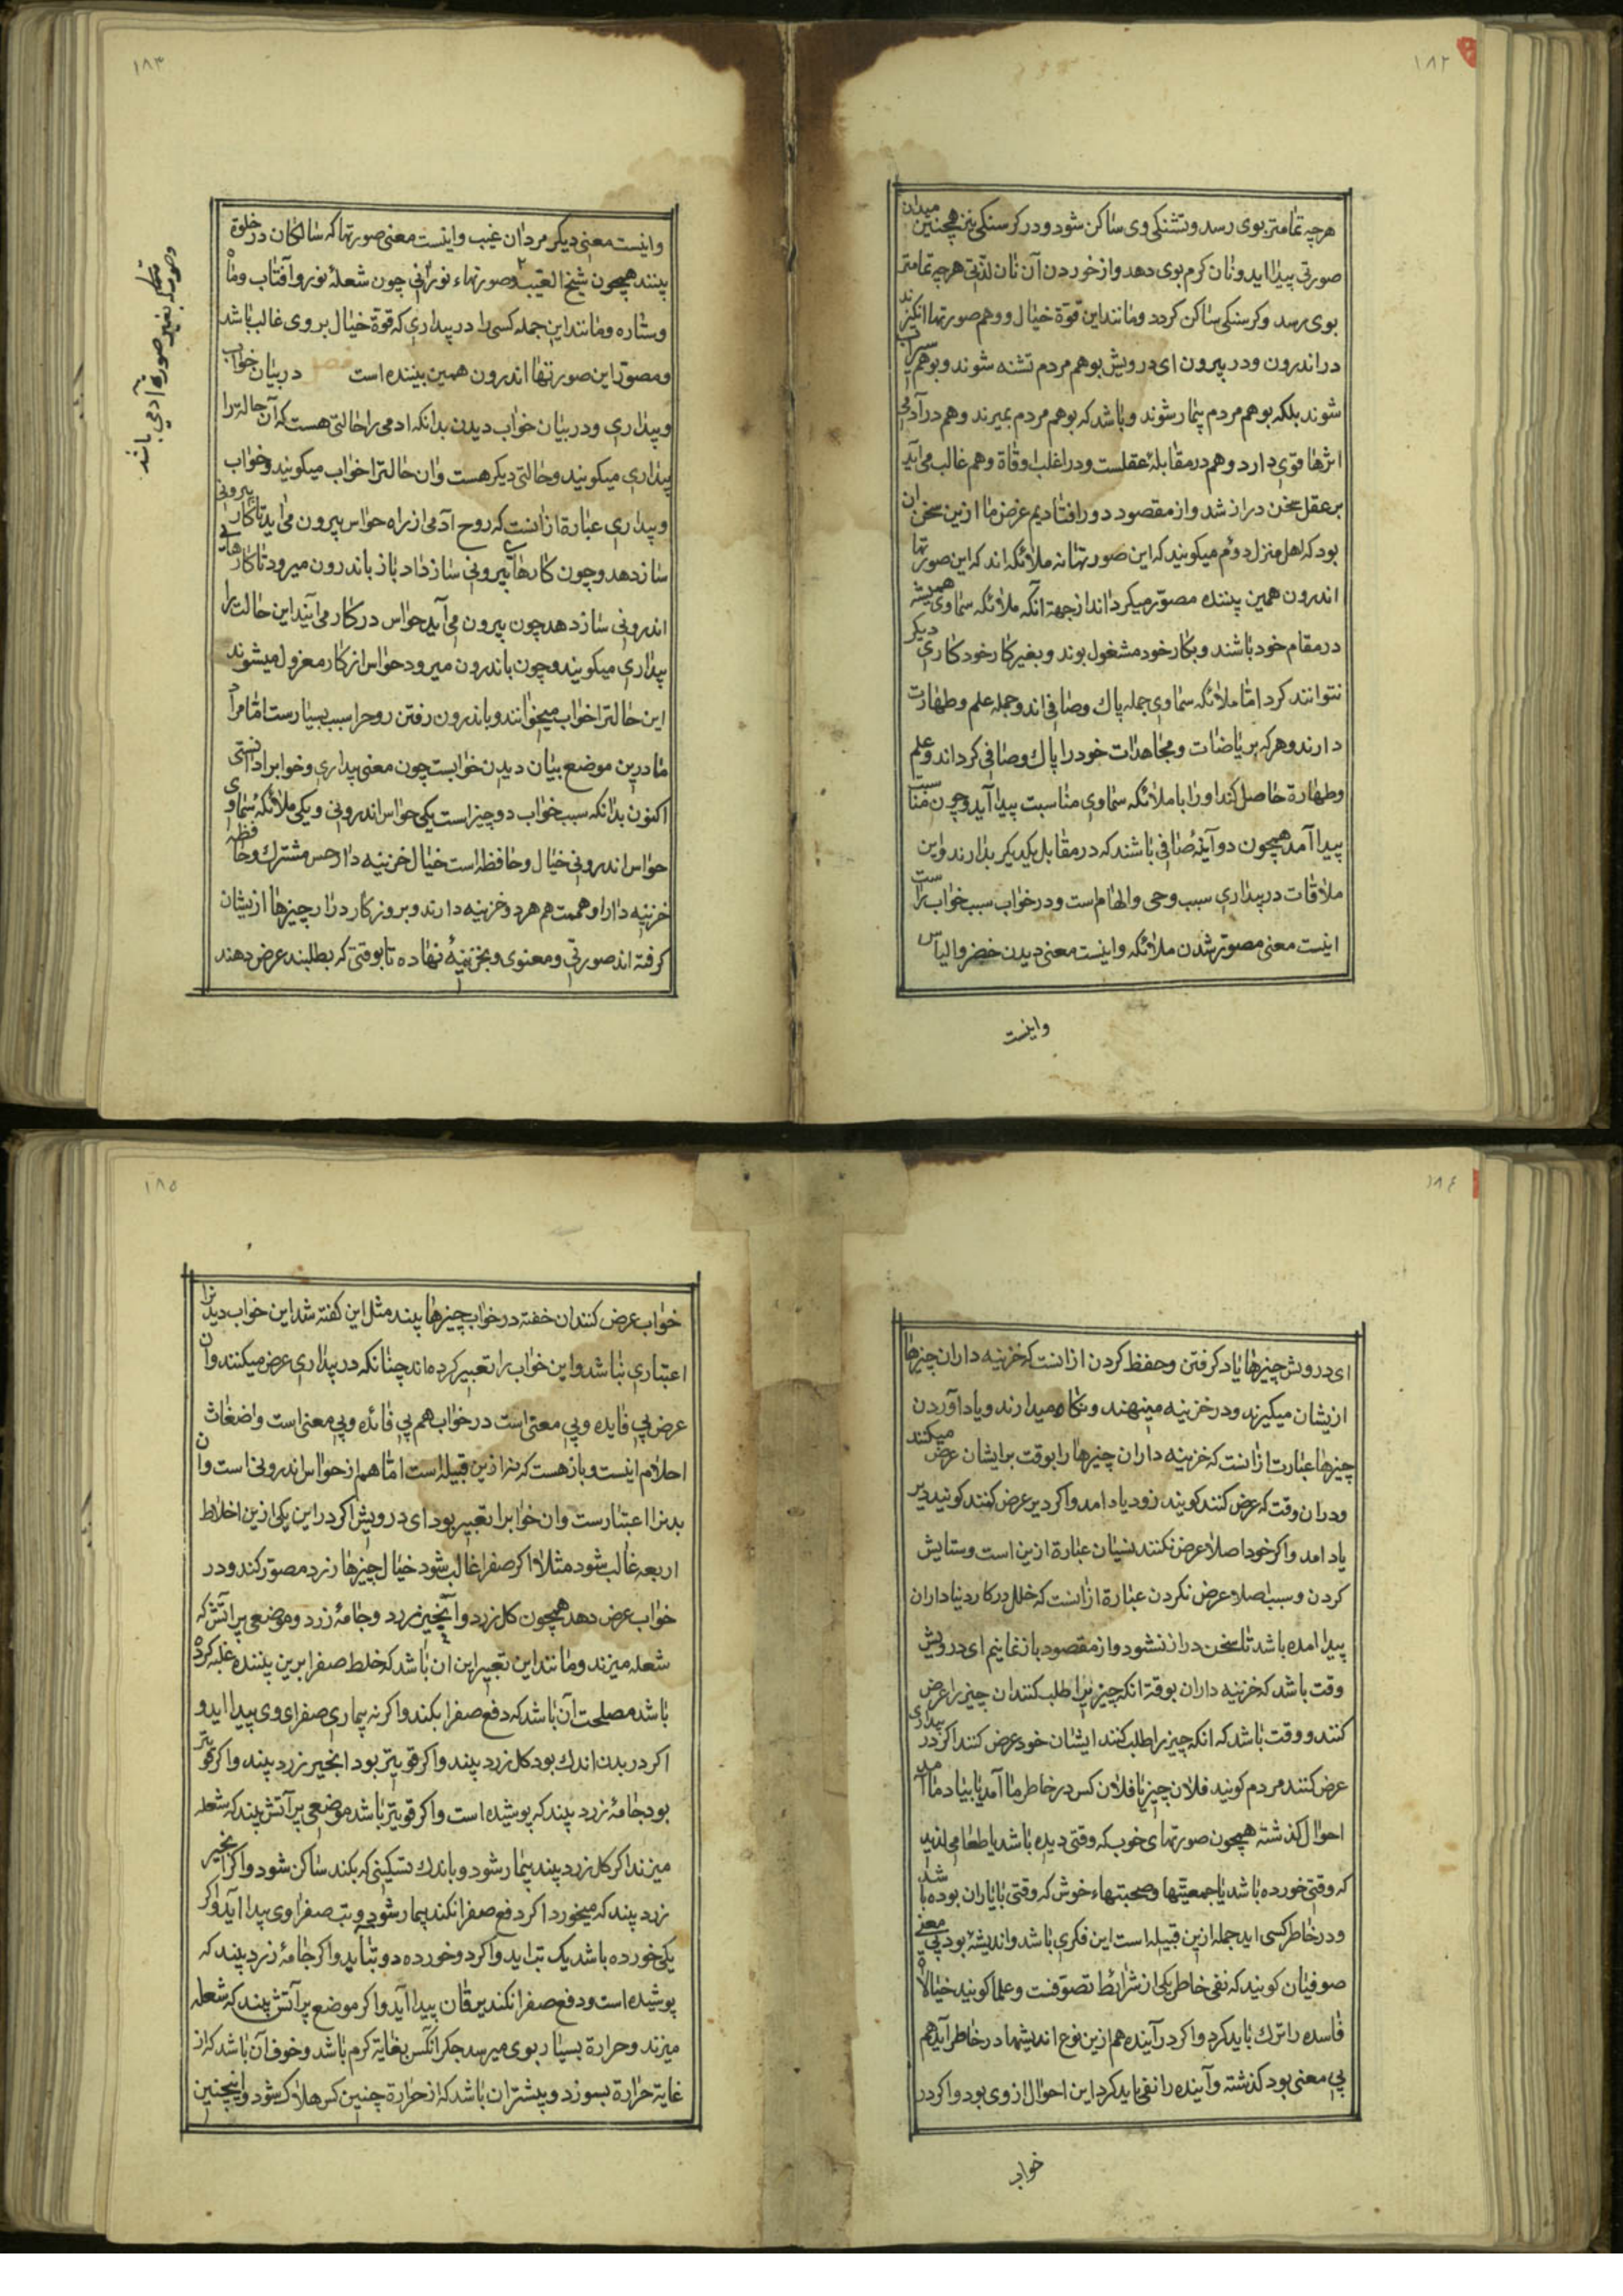 ۱۸۲
هرچه تمامتر بوی رسد و تشنکی وی ساکن شود و در کرسنکی نیز همچنین میدان
صورتی پیدا اید و نان کرم بوی دهد و از خوردن آن نان لذتی هرچه تمامتر
بوی رسد و کرسنکی ساکن کردد و مانند این قوة خیال و وهم صورتها انکیزند
در اندرون و در بیرون ای درویش بوهم مردم تشنه شوند و بوهم سیراب
شوند بلکه بوهم مردم بیمار شوند و باشد که بوهم مردم بمیرند و هم در آدمی
اثرها قوی دارد و هم در مقابلهٔ عقلست و در اغلب اوقاة وهم غالب می آید
بر عقل سخن دراز شد و از مقصود دور افتادیم غرض ما ازین سخن ان
بود که اهل منزل دوم میکویند که این صورتها نه ملائکه اند که این صورتها
اندرون همین بیننده مصور میکرداند از جهة آنکه ملائکه سماوی همیشه
در مقام خود باشند و بکار خود مشغول بوند و بغیر کار خود کاری دیکر
نتوانند کرد اما ملائکه سماوی جمله پاک و صافی اند و جمله علم و طهارت
دارند و هرکه بریاضات و مجاهدات خود را پاک و صافی کرداند و علم
و طهارة حاصل کند او را با ملائکه سماوی مناسبت پیدا آید و چون مناسبت
پیدا آمد همچون دو آینهٔ صافی باشند که در مقابل یکدیکر بدارند و این
ملاقات در بیداری سبب وحی و الهام است و در خواب سبب خواب راست
اینست معنی مصور شدن ملائکه و اینست معنی دیدن خضر و الیاس
و اینست
۱۸۳
و اینست معنی دیکر مردان غیب و اینست معنی صورتها که سالکان در خلوة
بینند همچون شیخ الغیب و صورتهاء نورانی چون شعلهٔ نور و آفتاب و ماه
و ستاره و مانند این جمله کسی را در بیداری که قوة خیال بر وی غالب باشد
و مصور این صورتها اندرون همین بیننده است فصل در بیان خواب
و بیداری و در بیان خواب دیدن بدانکه ادمی را حالتی هست که آن حالترا
بیداری میکویند و حالتی دیکر هست و ان حالترا خواب میکویند و خواب
و بیداری عبارة ازانست که روح آدمی از راه حواس بیرون می اید تا کار بیرونی
ساز دهد و چون کارهای بیرونی ساز داد باز باندرون میرود تا کارهای
اندرونی ساز دهد چون بیرون می آید حواس در کار می آیند این حالت را
بیداری میکویند و چون باندرون میرود حواس از کار معزول میشوند
این حالترا خواب میخوانند و باندرون رفتن روح را سبب بسیارست اما مراد
ما درین موضع بیان دیدن خوابست چون معنی بیداری و خواب را دانستی
اکنون بدانکه سبب خواب دو چیز است یکی حواس اندرونی و یکی ملائکهٔ سماوی
حواس اندرونی خیال و حافظه است خیال خزینه دار حس مشترک و حافظه
خزینه دار وهمست هم هر دو خزینه دارند و بروزکار دراز چیزها ازیشان
کرفته اند صورتی و معنوی و بخزینهٔ نهاده تا بوقتی که بطلبند عرض دهند
و صورت بغیر صورة آدمی باشد
۱۸۴
ای درویش چیزها یاد کرفتن و حفظ کردن ازانست که خزینه داران چیزها
ازیشان میکیرند و در خزینه مینهند و نکاه میدارند و یاد آوردن
چیزها عبارت ازانست که خزینه داران چیزها را بوقت بر ایشان عرض میکنند
و دران وقت که عرض کنند کویند زود یاد امد و اکر دیر عرض کنند کویند دیر
یاد امد و اکر خود اصلا عرض نکنند نسیان عبارة ازین است و ستایش
کردن و سبب اصلا عرض نکردن عبارة ازانست که خلل در کار دنیاداران
پیدا امده باشد تا سخن دراز نشود و از مقصود باز نمانیم ای درویش
وقت باشد که خزینه داران بوقة انکه چیز را طلب کنند ان چیز را عرض
کنند و وقت باشد که انکه چیز را طلب کنند ایشان خود عرض کنند اکر در بیداری
عرض کنند مردم کویند فلان چیز یا فلان کس در خاطر ما آمد یا بیاد ما آمد
احوال کذشته همچون صورتهای خوب که وقتی دیده باشد یا طعامی لذیذ
که وقتی خورده باشد یا جمعیتها و صحبتهاء خوش که وقتی با یاران بوده باشد
و در خاطر کسی اید جمله ازین قبیله است این فکری باشد و اندیشهٔ بود بی معنی
صوفیان کویند که نفی خاطر یکی از شرائط تصوفست و علما کویند خیالاة
فاسده را ترک باید کرد و اکر در آینده هم ازین نوع اندیشها در خاطر آید هم
بی معنی بود کذشته و آینده را نفی باید کرد این احوال از وی بود و اکر در
خواب
۱۸۵
خواب عرض کنند ان خفته در خواب چیزها بیند مثل این کفته شد این خواب دیدنرا
اعتباری نباشد و این خواب را تعبیر کرده اند چنانکه در بیداری عرض میکنند و ان
عرض بی فایده و بی معنی است در خواب هم بی فائده و بی معنی است و اضغاث
احلام اینست و باز هست که نزا ازین قبیله است اما هم از حواس اندرونی است و ان
بدنرا اعتبارست و ان خوابرا تعبیر بود ای درویش اکر در این یکی ازین اخلاط
اربعه غالب شود مثلا اکر صفرا غالب شود خیال چیزها زرد مصور کند و در
خواب عرض دهد همچون کل زرد و انجیر زرد و جامهٔ زرد و موضعی پر اتش که
شعله میزند و مانند این تعبیر این ان باشد که خلط صفرا برین بیننده غلبه کرده
باشد مصلحت آن باشد که دفع صفرا بکند و اکر نه بیماری صفرای وی پیدا اید و
اکر در بدن اندک بود کل زرد بیند و اکر قویتر بود انجیر زرد بیند و اکر قویتر
بود جامهٔ زرد بیند که پوشیده است و اکر قویتر باشد موضعی پر آتش بیند که شعله
میزند اکر کل زرد بیند بیمار شود و باندک تسکینی که بکند ساکن شود و اکر انجیر
زرد بیند که میخورد اکر دفع صفرا نکند بیمار شود و تب صفراوی پیدا آید و اکر
یکی خورده باشد یک تب اید و اکر دو خورده دو تب اید و اکر جامهٔ زرد بیند که
پوشیده است و دفع صفرا نکند یرقان پیدا آید و اکر موضع پر آتش بیند که شعله
میزند و حرارة بسیار بوی میرسد جکر آنکس بغایة کرم باشد و خوف آن باشد که از
غایة حرارة بسوزد و بیشتر ان باشد که از حرارة چنین کس هلاک شود و اینچنین